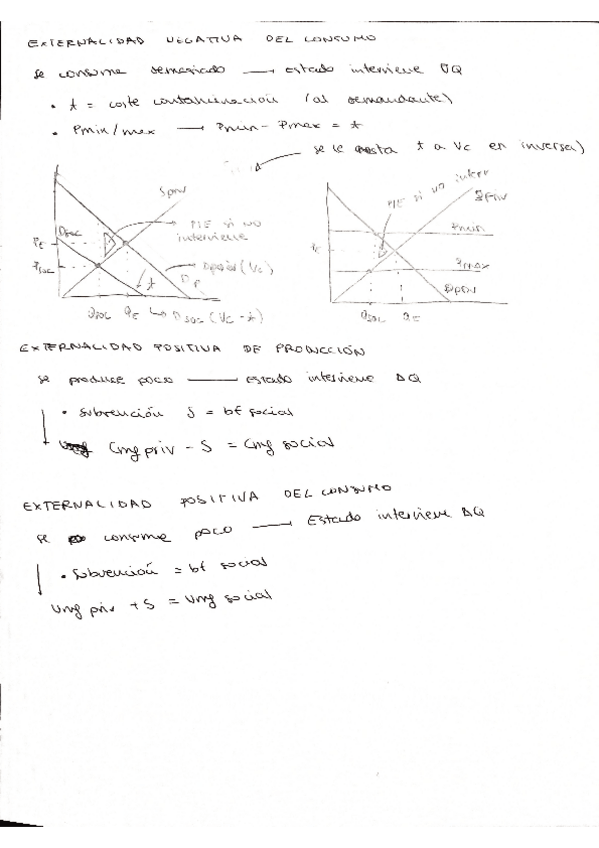 EXTERNALIDAD NEGATIVA DEL CONSUMO
se consume demasiado → estado interviene ∇Q
• t = coste contaminación (al demandante)
• Pmin/max → Pmin - Pmax = t
se le resta t a Vc en inversa)
Spriv
PIE si no
interviene
Dsoc
PE
Psoc
t
Dpriv (Vc)
Dp
Qsoc QE → Dsoc (Vc - t)
PIE si no interv
Spriv
Pmin
PE
Pmax
Dpriv
Qsoc QE
EXTERNALIDAD POSITIVA DE PRODUCCIÓN
se produce poco → estado interviene ΔQ
• subvención S = bf social
Cmg priv - S = Cmg social
EXTERNALIDAD POSITIVA DEL CONSUMO
se consume poco → Estado interviene ΔQ
• subvención = bf social
Umg priv + S = Umg social